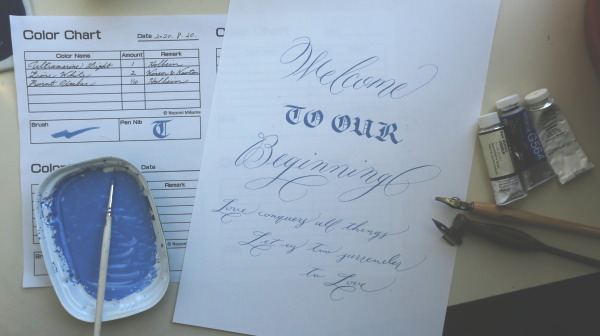 Color Chart
Date 2020. 8. 20.
Color Name Amount Remark
Ultramarine Light 1 Holbein
Zinc White 2 Winsor & Newton
Burnt Umber Holbein
© Naomi Millares
Brush
Pen Nib
T
Color
Date
Remark
Brush
Welcome
TO OUR
Beginning
Love conquers all things
Let us too surrender
to Love
G564